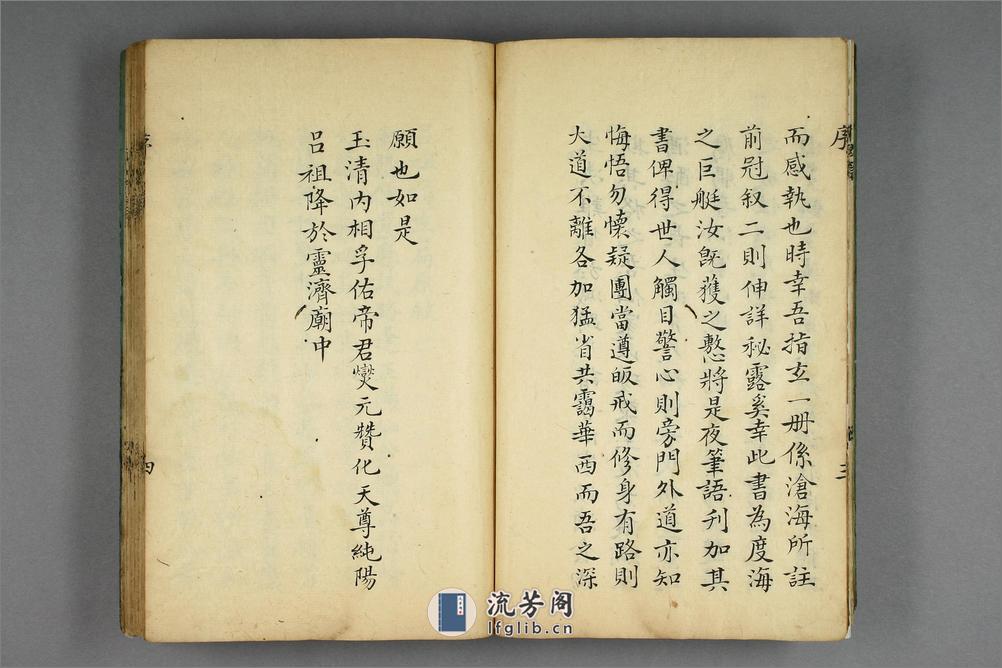 序
三
而感執也時幸吾指玄一册係滄海所註
前冠叙二則伸詳秘露奚幸此書為度海
之巨艇汝旣獲之慜將是夜筆語刋加其
書俾得世人觸目警心則旁門外道亦知
悔悟勿懷疑團當遵皈戒而修身有路則
大道不離各加猛省共靄華西而吾之深
願也如是
玉清内相孚佑帝君爕元贊化天尊純陽
吕祖降於靈濟廟中
序
四
流芳阁
lfglib.cn